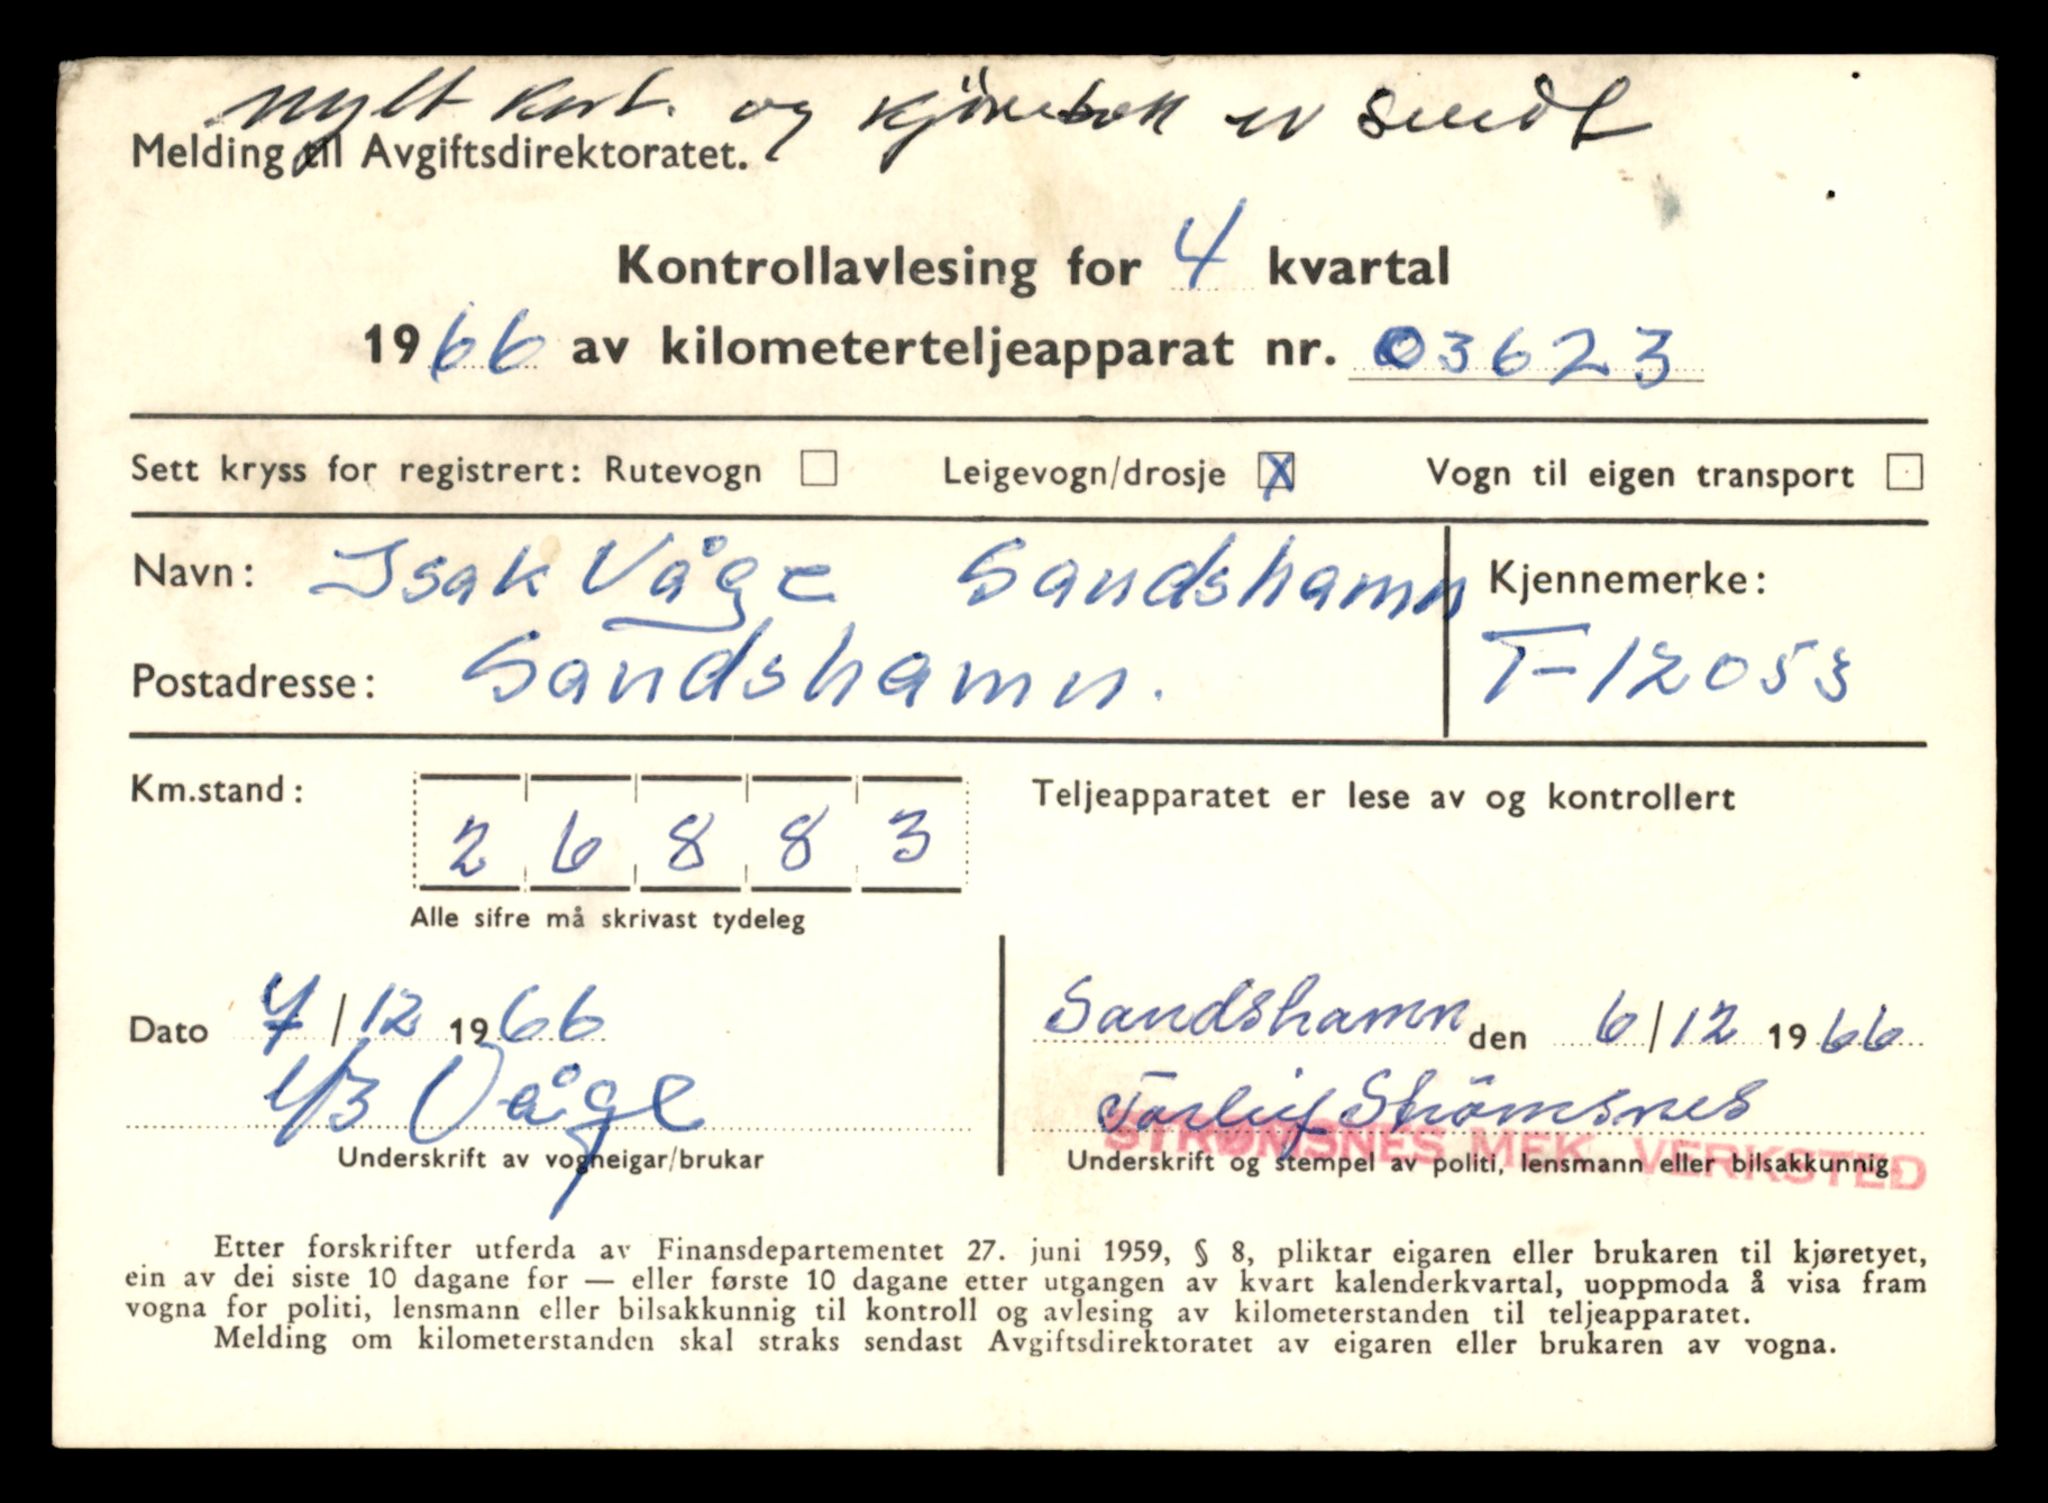 nytt kort. og kjörebok er sendt
Melding til Avgiftsdirektoratet.
Kontrollavlesing for 4 kvartal
1966 av kilometerteljeapparat nr. 03623
Sett kryss for registrert: Rutevogn Leigevogn/drosje X Vogn til eigen transport
Navn: Isak Våge Sandshamn Kjennemerke:
Postadresse: Sandshamn. T-12053
Km.stand: Teljeapparatet er lese av og kontrollert
2 6 8 8 3
Alle sifre må skrivast tydeleg
Dato 7/12 1966 Sandshamn den 6/12 1966
Våge Torleif Strömsnes
STRØMSNES MEK. VERKSTED
Underskrift av vogneigar/brukar Underskrift og stempel av politi, lensmann eller bilsakkunnig
Etter forskrifter utferda av Finansdepartementet 27. juni 1959, § 8, pliktar eigaren eller brukaren til kjøretyet,
ein av dei siste 10 dagane før — eller første 10 dagane etter utgangen av kvart kalenderkvartal, uoppmoda å visa fram
vogna for politi, lensmann eller bilsakkunnig til kontroll og avlesing av kilometerstanden til teljeapparatet.
Melding om kilometerstanden skal straks sendast Avgiftsdirektoratet av eigaren eller brukaren av vogna.